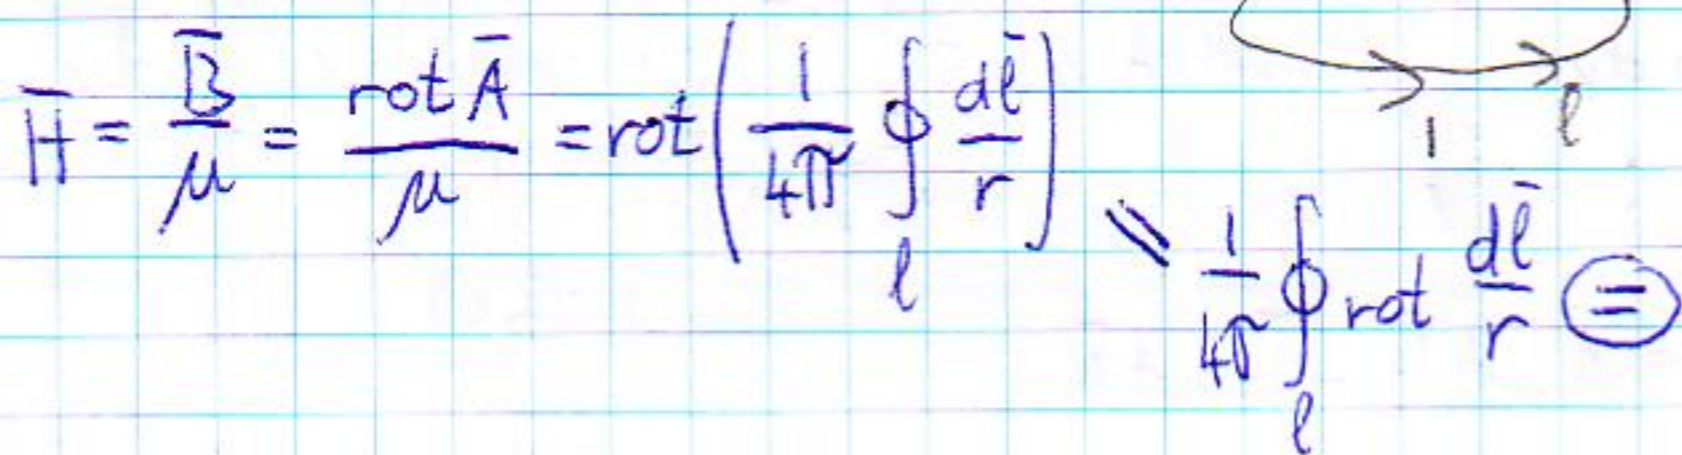 H̄ = B̄/μ = rot Ā/μ = rot(1/4π ∮_l dl̄/r)
1 l
\\ 1/4π ∮_l rot dl̄/r ⊜